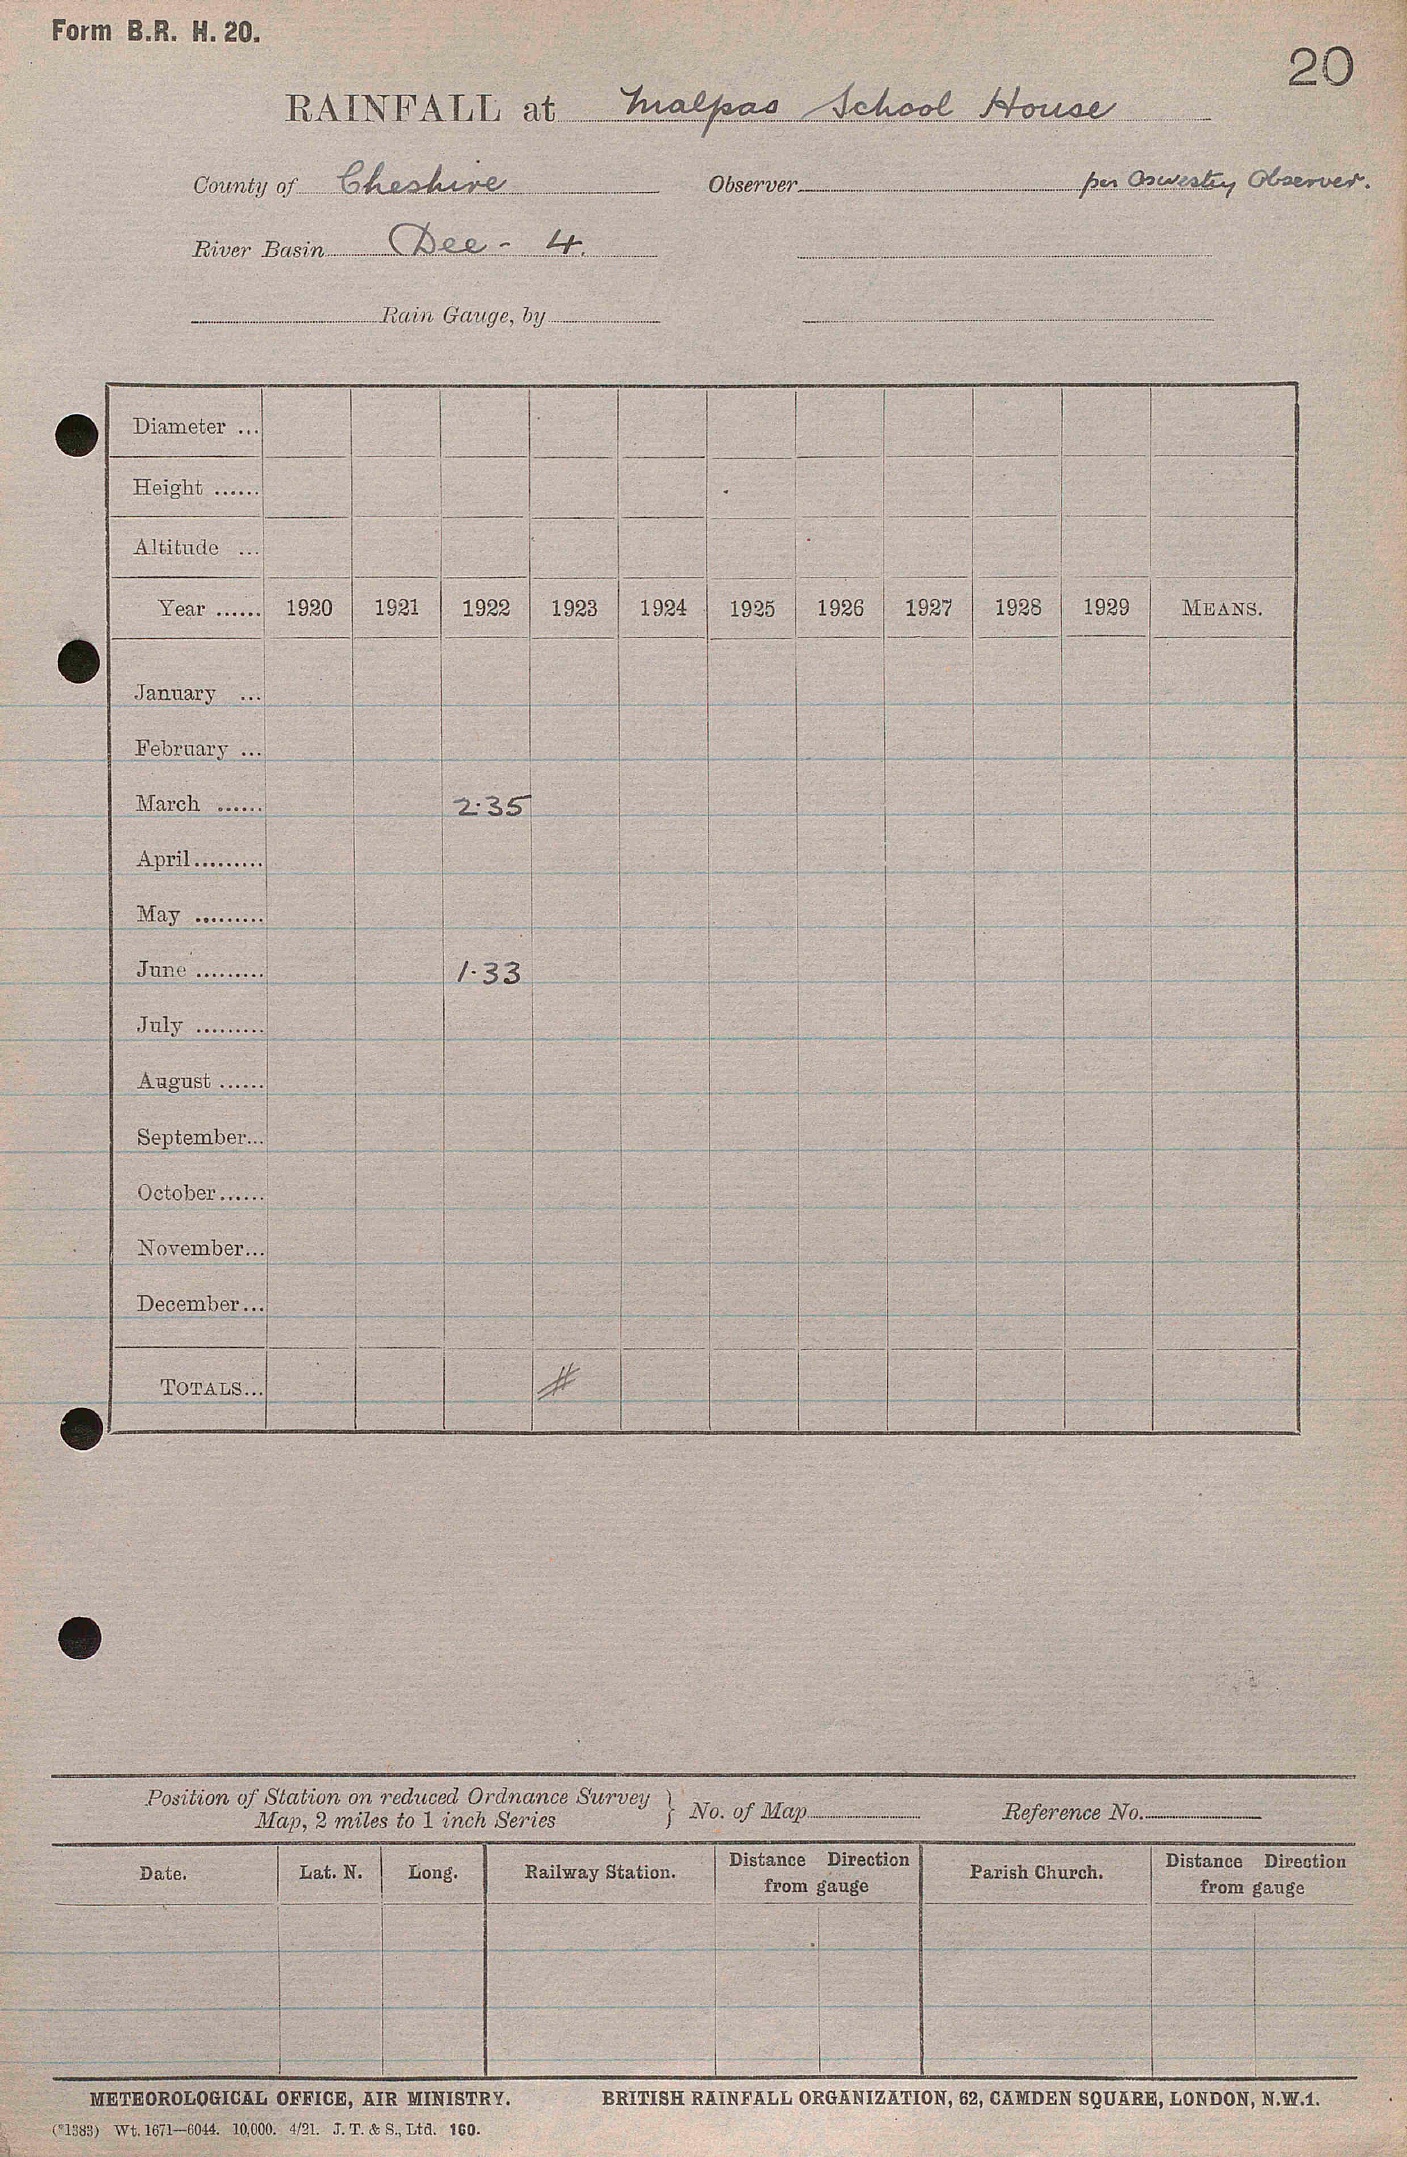 Form B.R. H. 20.
20
RAINFALL at Malpas School House
County of Cheshire Observer per Oswestry Observer.
River Basin Dee - 4.
Rain Gauge, by
Diameter ...
Height ......
Altitude ...
Year ...... 1920 1921 1922 1923 1924 1925 1926 1927 1928 1929 MEANS.
January ...
February ...
March ...... 2.35
April.........
May .........
June ......... 1.33
July .........
August ......
September...
October......
November...
December...
TOTALS... #
Position of Station on reduced Ordnance Survey
Map, 2 miles to 1 inch Series } No. of Map Reference No.
Date. Lat. N. Long. Railway Station. Distance Direction from gauge Parish Church. Distance Direction from gauge
METEOROLOGICAL OFFICE, AIR MINISTRY. BRITISH RAINFALL ORGANIZATION, 62, CAMDEN SQUARE, LONDON, N.W.1.
(*1383) Wt. 1671—6044. 10,000. 4/21. J. T. & S., Ltd. 160.